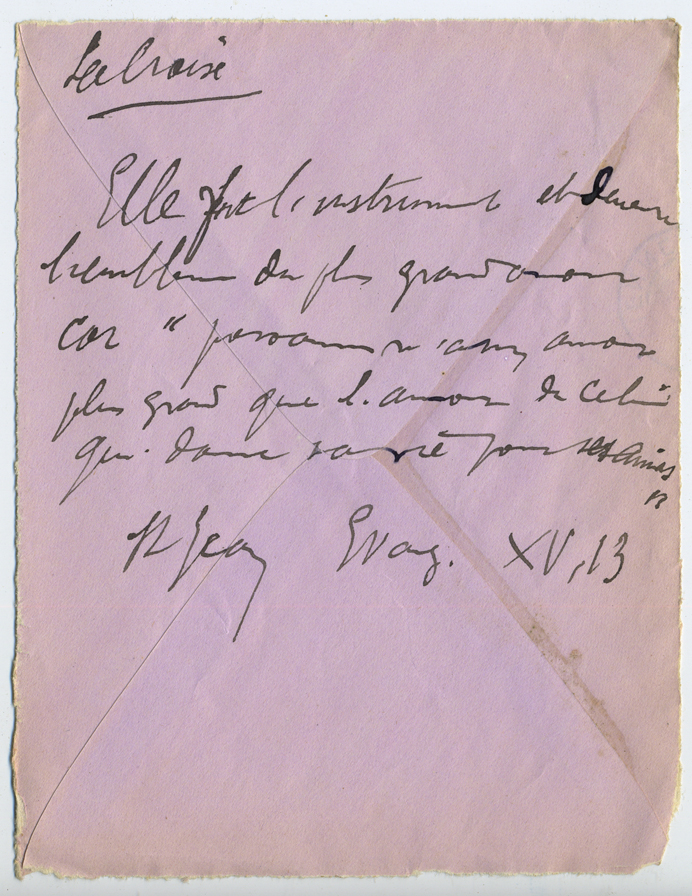 La Croix
Elle fut l'instrument et devenu
l'emblème du plus grand amour
car " personne n'a un amour
plus grand que l'amour de celui
qui donne sa vie pour ses amis
"
St Jean Evang. XV, 13